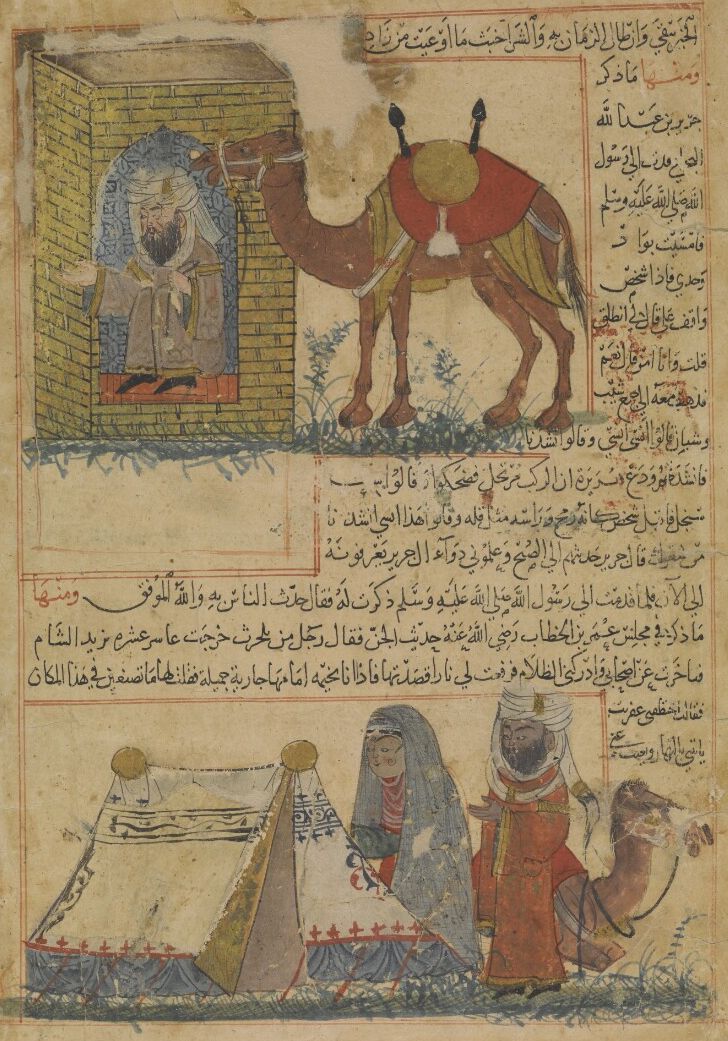 الخير يبقى وان طال الزمان به والشر اخبث ما اوعيت من زاد
ومنها ما ذكر
جرير بن عبد الله
قدمت الى رسول
الله صلى الله عليه وسلم
فامسيت بواد
وحدي فاذا شخص
واقف علي قال لي انطلق
قلت وانا امن قال نعم
فذهبت معه الى جمع شيب
وشبان قالوا انسي انسي وقالوا انشدنا
فانشدتهم ودع هريرة ان الركب مرتحل فضحكوا وقالوا
فاقبل شخص كانه رمح وراسه مثل قلة وقالوا هذا انسي انشدنا
من شعرك قال جرير حدثتهم الى الصبح وعلموني دوآء ال جرير يعرفونه
الى الآن فلما قدمت الى رسول الله صلى الله عليه وسلم ذكرت له فقال حدث الناس به والله الموفق ومنها
ما ذكر في مجلس عمر بن الخطاب رضي الله عنه حديث الجن فقال رجل من بلحرث خرجت عاشر عشرة نريد الشام
فتاخرت عن اصحابي وادركني الظلام فرفعت لي نار فقصدتها فاذا انا بخيمة امامها جارية جميلة فقلت لها ما تصنعين في هذا المكان
فقالت اختطفني عفريت
ياتيني بالنهار ويغيب عني